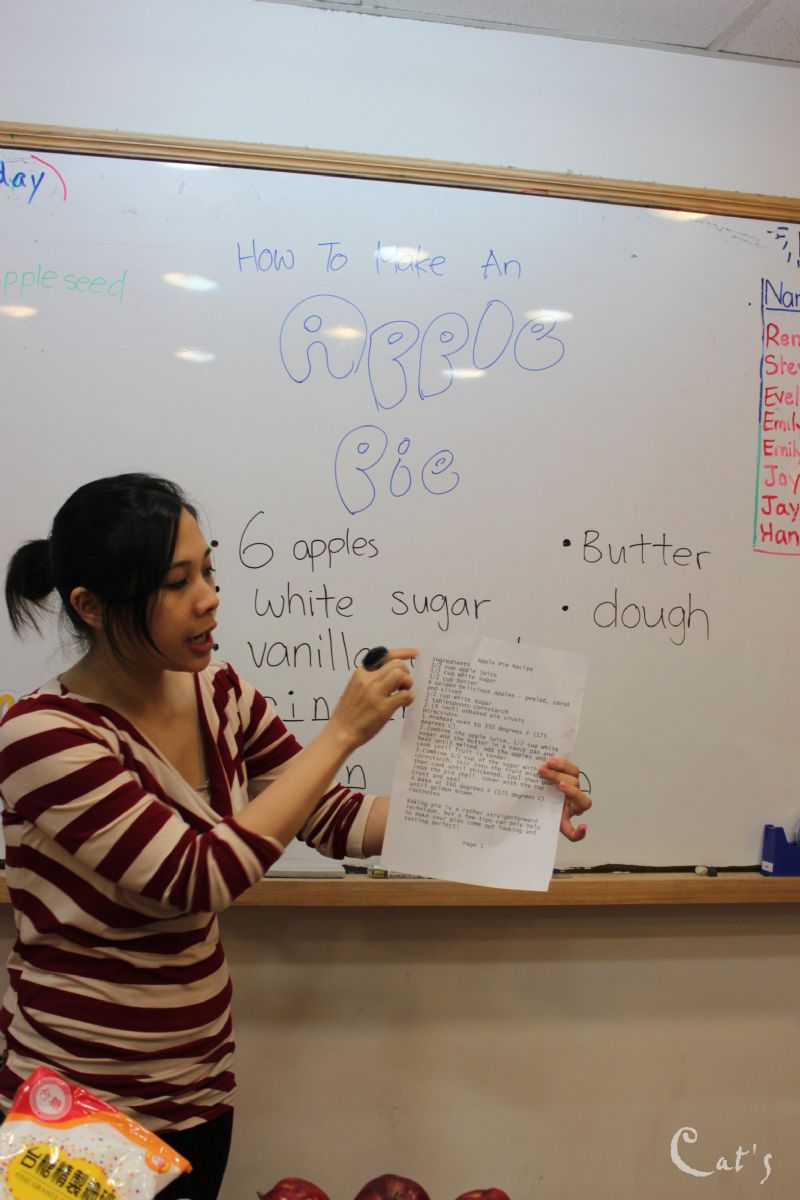 day)
Appleseed
How To Make An
Apple
Pie
• 6 apples
• white sugar
• vanilla
• Butter
• dough
Ren
Stev
Evel
Emily
Emily
Joy
Jay
Han
Apple Pie Recipe
Ingredients
1/2 cup apple juice
1/2 cup white sugar
1/2 cup butter
6 Golden Delicious apples - peeled, cored
and sliced
1/2 cup white sugar
2 tablespoons cornstarch
2 (9 inch) unbaked pie crusts
Directions
1.Preheat oven to 350 degrees F (175
degrees C)
2.Combine the apple juice, 1/2 cup white
sugar and the butter in a sauce pan and
heat until melted. Add the apples and
cook until fruit is tender
3.Combine 1/2 cup of the sugar with
cornstarch, stir into the fruit
then cook until thickened. Cool then
into the pie shell. Cover with the top
crust and seal
4.Bake at 350 degrees F (175 degrees C)
until golden brown.
Footnotes
Baking pie is a rather straightforward
technique, but a few tips can only help
to make your pies come out looking and
tasting perfect!
Page 1
台糖
台糖精製細砂
FINE GRANU
Cat's